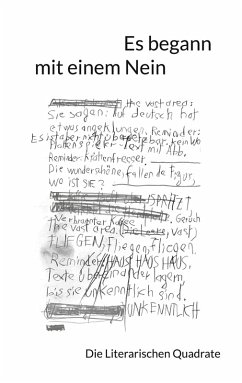 Es begann
mit einem Nein
the vast area:
Sie sagen: auf deutsch hat
etwas angeklungen. Reminder:
Es ist aber nicht übersetzbar. kein Wo
Text mit Abb.
Reminder:
Die wunderschöne, fallende Figur,
wo ist sie?
SPRITZT
Verbrannter Kaffee. Geruch
the vast area. vast)
FLIEGEN, Fliegen, fliegen.
Reminder: HAUST HAUS HAUS,
Texte übereinander lagern,
bis sie unkenntlich sind.
UNKENNTLICH
Die Literarischen Quadrate